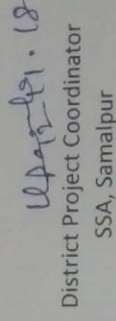 District Project Coordinator
SSA, Samalpur